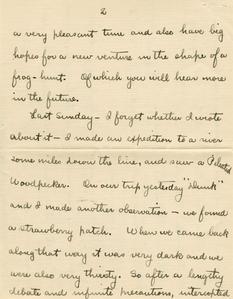 2
a very pleasant time and also have big
hopes for a new venture in the shape of a
frog-hunt. Of which you will hear more
in the future.
Last Sunday - I forget whether I wrote
about it - I made an expedition to a river
some miles down the line, and saw a Pileated
Woodpecker. On our trip yesterday "Hunk"
and I made another observation - we found
a strawberry patch. When we came back
along that way it was very dark and we
were also very thirsty. So after a lengthy
debate and infinite precautions, intercepted